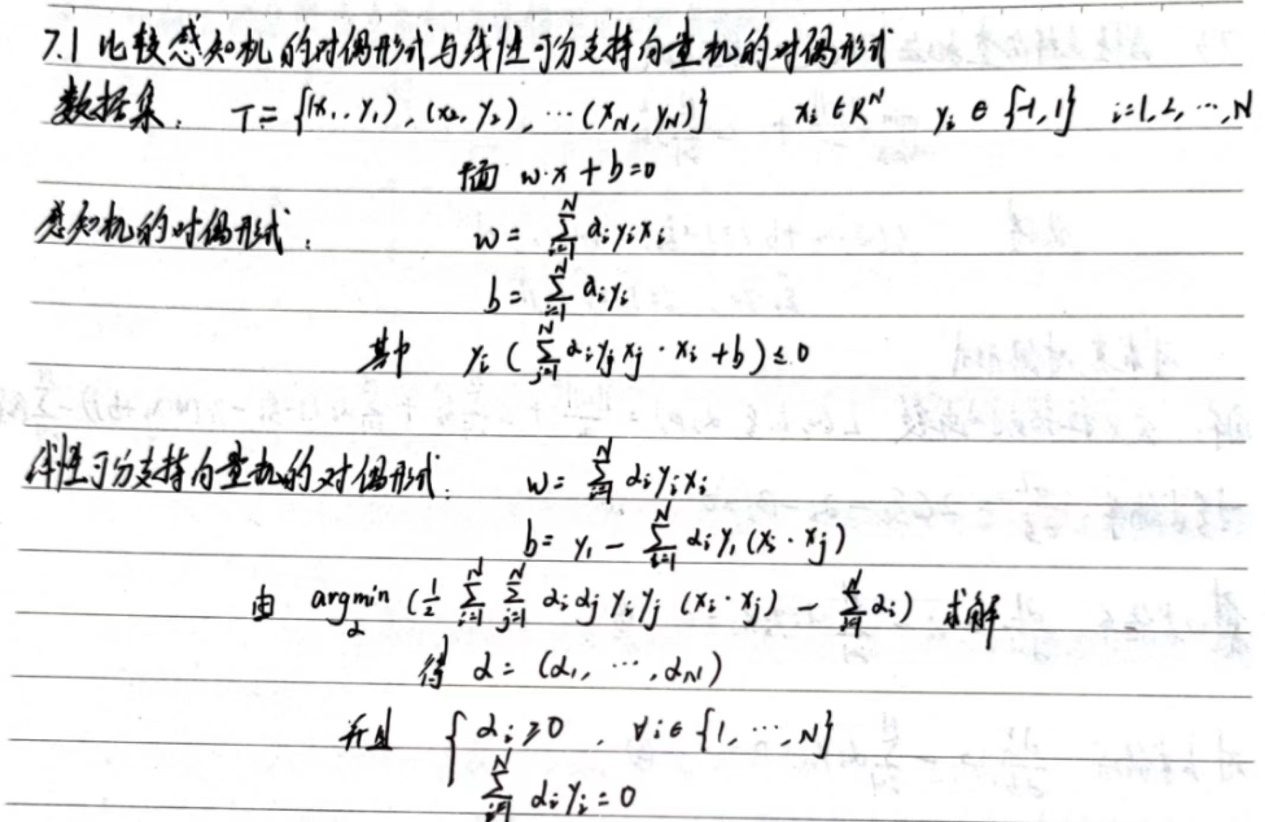 7.1 比较感知机的对偶形式与线性可分支持向量机的对偶形式
数据集: T = {(x₁, y₁), (x₂, y₂), ⋯ (x_N, y_N)} xᵢ ∈ R^N yᵢ ∈ {-1, 1} i=1, 2, ⋯, N
平面 w·x + b = 0
感知机的对偶形式: w = \sum_{i=1}^{N} αᵢ yᵢ xᵢ
b = \sum_{i=1}^{N} αᵢ yᵢ
其中 yᵢ ( \sum_{j=1}^{N} αᵢ yⱼ xⱼ · xᵢ + b ) ≤ 0
线性可分支持向量机的对偶形式: w = \sum_{i=1}^{N} αᵢ yᵢ xᵢ
b = y₁ - \sum_{i=1}^{N} αᵢ y₁ (xᵢ · xⱼ)
由 argmin_α ( \frac{1}{2} \sum_{i=1}^{N} \sum_{j=1}^{N} αᵢ αⱼ yᵢ yⱼ (xᵢ · xⱼ) - \sum_{i=1}^{N} αᵢ ) 求解
得 α = (α₁, ⋯, α_N)
并且 { αᵢ ≥ 0 , ∀i ∈ {1, ⋯, N}
\sum_{i=1}^{N} αᵢ yᵢ = 0